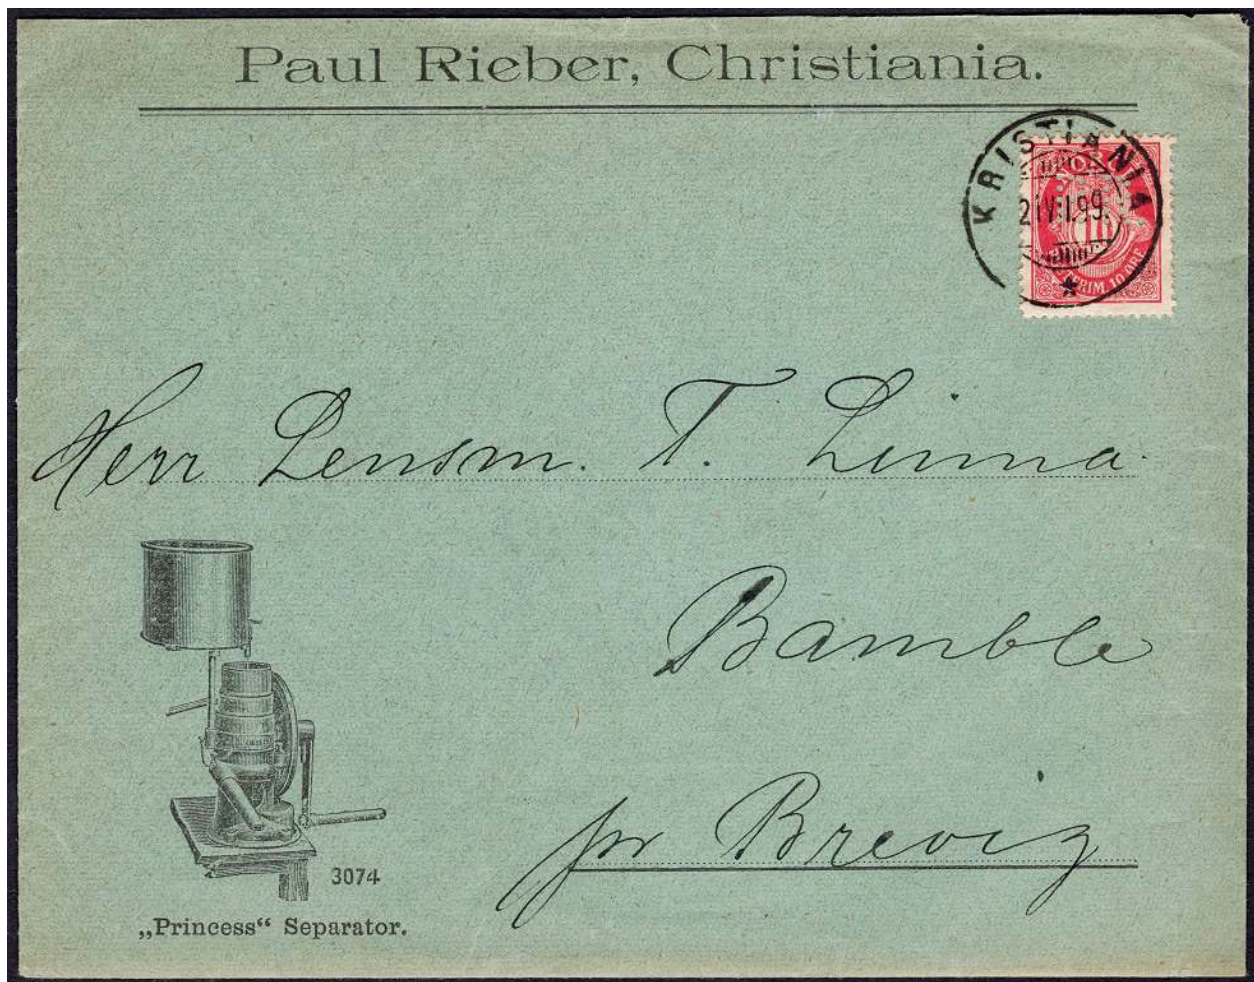 Paul Rieber, Christiania.
KRISTIANIA
NORGE
10
FRIM. 10 ØRE
Herr Lensm. T. Linna.
Bamble
pr Brevig
3074
„Princess“ Separator.